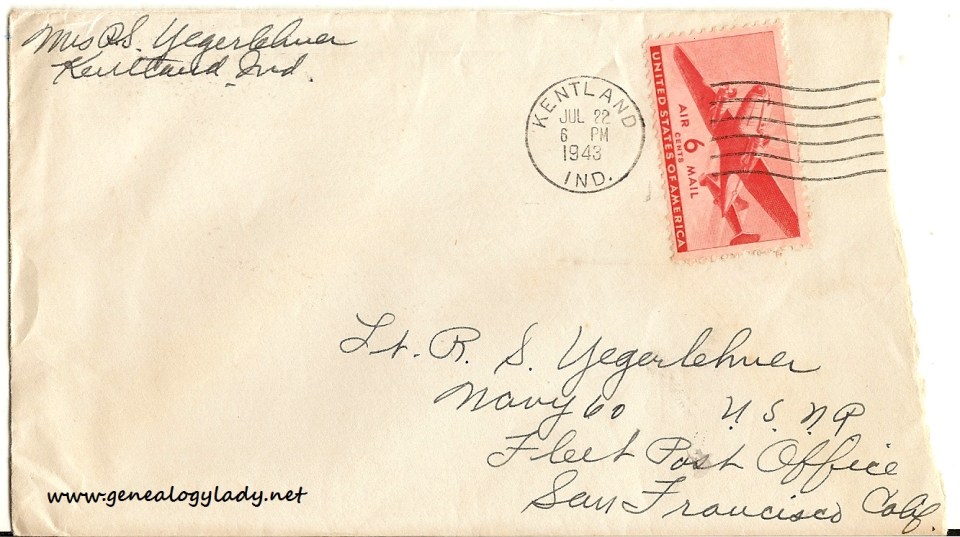 Mrs R.S. Yegerlehner
Kentland, Ind.
KENTLAND
JUL 22
6 PM
1943
IND.
UNITED STATES OF AMERICA
AIR MAIL
6
CENTS
Lt. R. S. Yegerlehner
Navy 60 U.S.N.R
Fleet Post Office
San Francisco Calif.
www.genealogylady.net